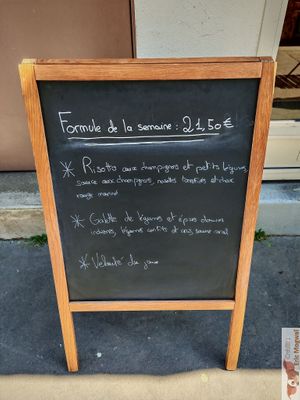 Formule de la semaine : 21,50€
* Risotto aux champignons et petits légumes,
sauce aux champignons, noisettes torréfiées et chou
rouge mariné
* Galette de légumes et épices douces
indiennes, légumes confits et coco, sauce
* Velouté du jour
Eric Moguet